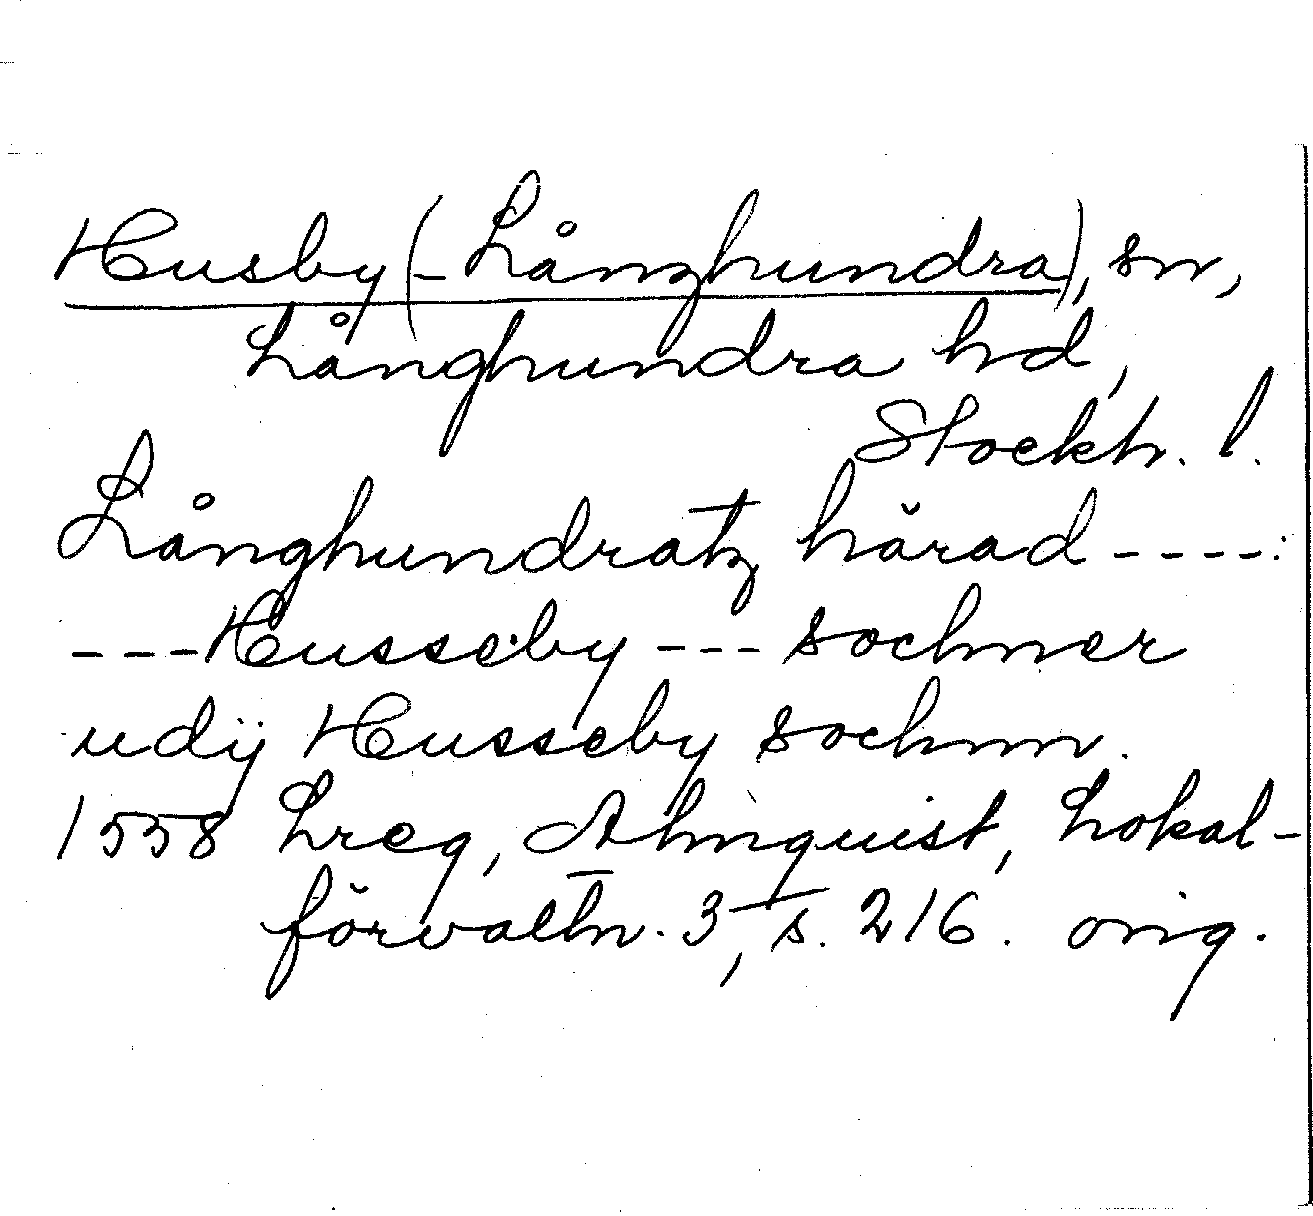 Husby (-Långhundra), sn,
Långhundra hd,
Stockh. l.
Långhundratz härad ----:
---Husseby --- sochner
udij Husseby sochnn.
1558 Lreg, Almquist, Lokal-
förvaltn. 3, s. 216. orig.